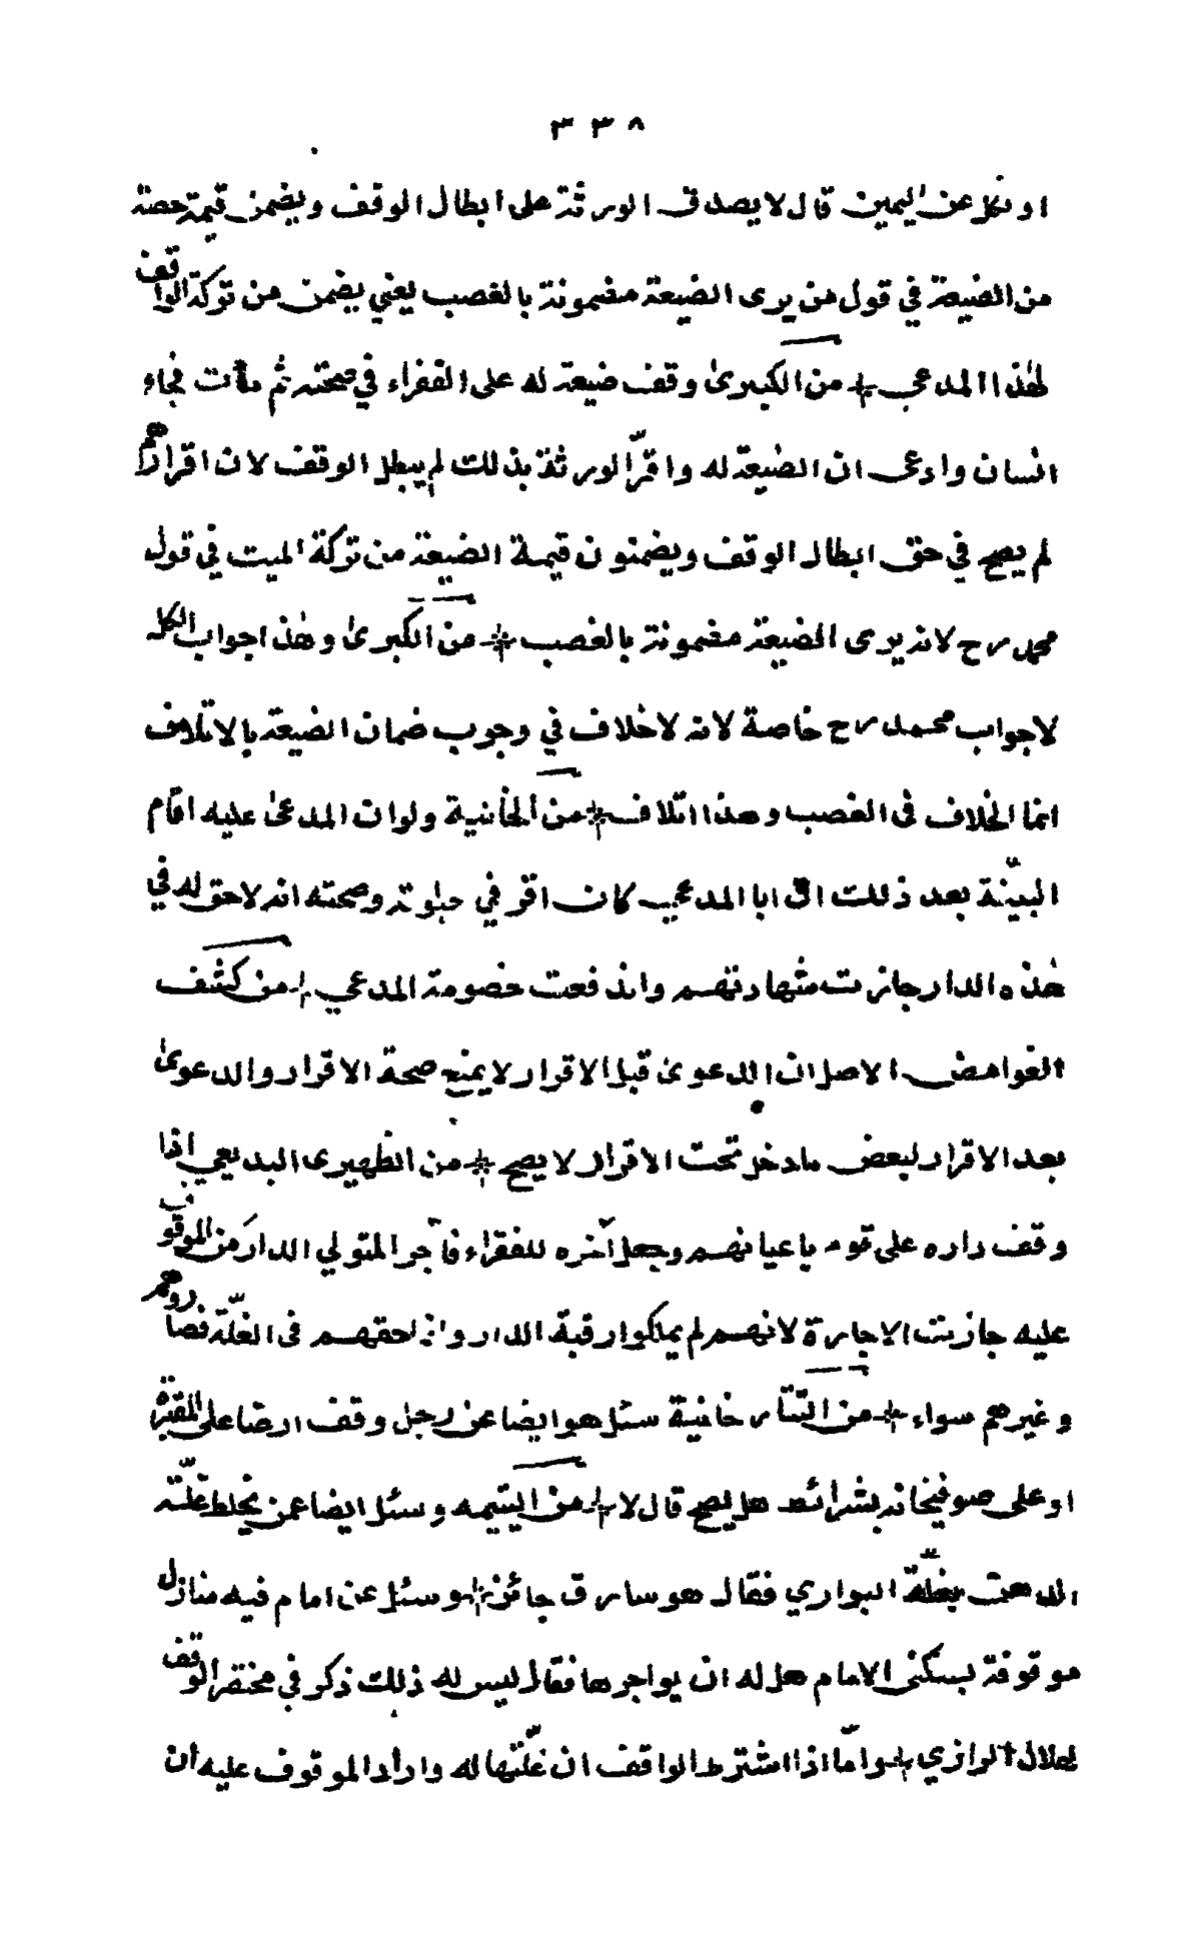 ٣٣٨
او نكل عن اليمين قال لا يصدق الورثة على ابطال الوقف ويضمن قيمة حصته
من الضيعة في قول من يرى الضيعة مضمونة بالغصب يعني يضمن من تركة الواقف
لهذا المدعي * من الكبرى وقف ضيعة له على الفقراء في صحته ثم مات فجاء
انسان وادعى ان الضيعة له واقرّ الورثة بذلك لم يبطل الوقف لان اقرارهم
لم يصح في حق ابطال الوقف ويضمنون قيمة الضيعة من تركة الميت في قول
محمد رح لانه يرى الضيعة مضمونة بالغصب * من الكبرى وهذا جواب الكل
لا جواب محمد رح خاصة لانه لا خلاف في وجوب ضمان الضيعة بالاتلاف
انما الخلاف فى الغصب وهذا اتلاف * من الخانية ولو ان المدعى عليه اقام
البيّنة بعد ذلك انّ ابا المدعي كان اقر في حيٰوته وصحته انه لا حق له في
هٰذه الدار جازت شهادتهم واندفعت خصومة المدعي * من كشف
الغوامض الاصل ان الدعوى قبل الاقرار لا يمنع صحة الاقرار والدعوىٰ
بعد الاقرار لبعض ما دخل تحت الاقرار لا يصح * من الظهيرى البديعي اذا
وقف داره على قوم باعيانهم وجعل آخره للفقراء فآجر المتولي الدار من الموقوف
عليه جازت الاجارة لانهم لم يملكوا رقبة الدار وانما حقهم فى الغلّة فصاروهم
وغيرهم سواء * من التتارخانية سئل هو ايضا عن رجل وقف ارضا على المقبرة
او على صوفيخانه بشرائط هل يصح قال لا * من اليتيمه وسئل ايضا عمن يخلط غلّة
الدهن بغلّة البواري فقال هو سارق جائز * وسئل عن امام فيه منازل
موقوفة بسكنى الامام هل له ان يواجرها فقال ليس له ذلك ذكر في مختصر الوقف
لهلال الرازي * وامّا اذا اشترط الواقف ان غلّتها له واراد الموقوف عليه ان